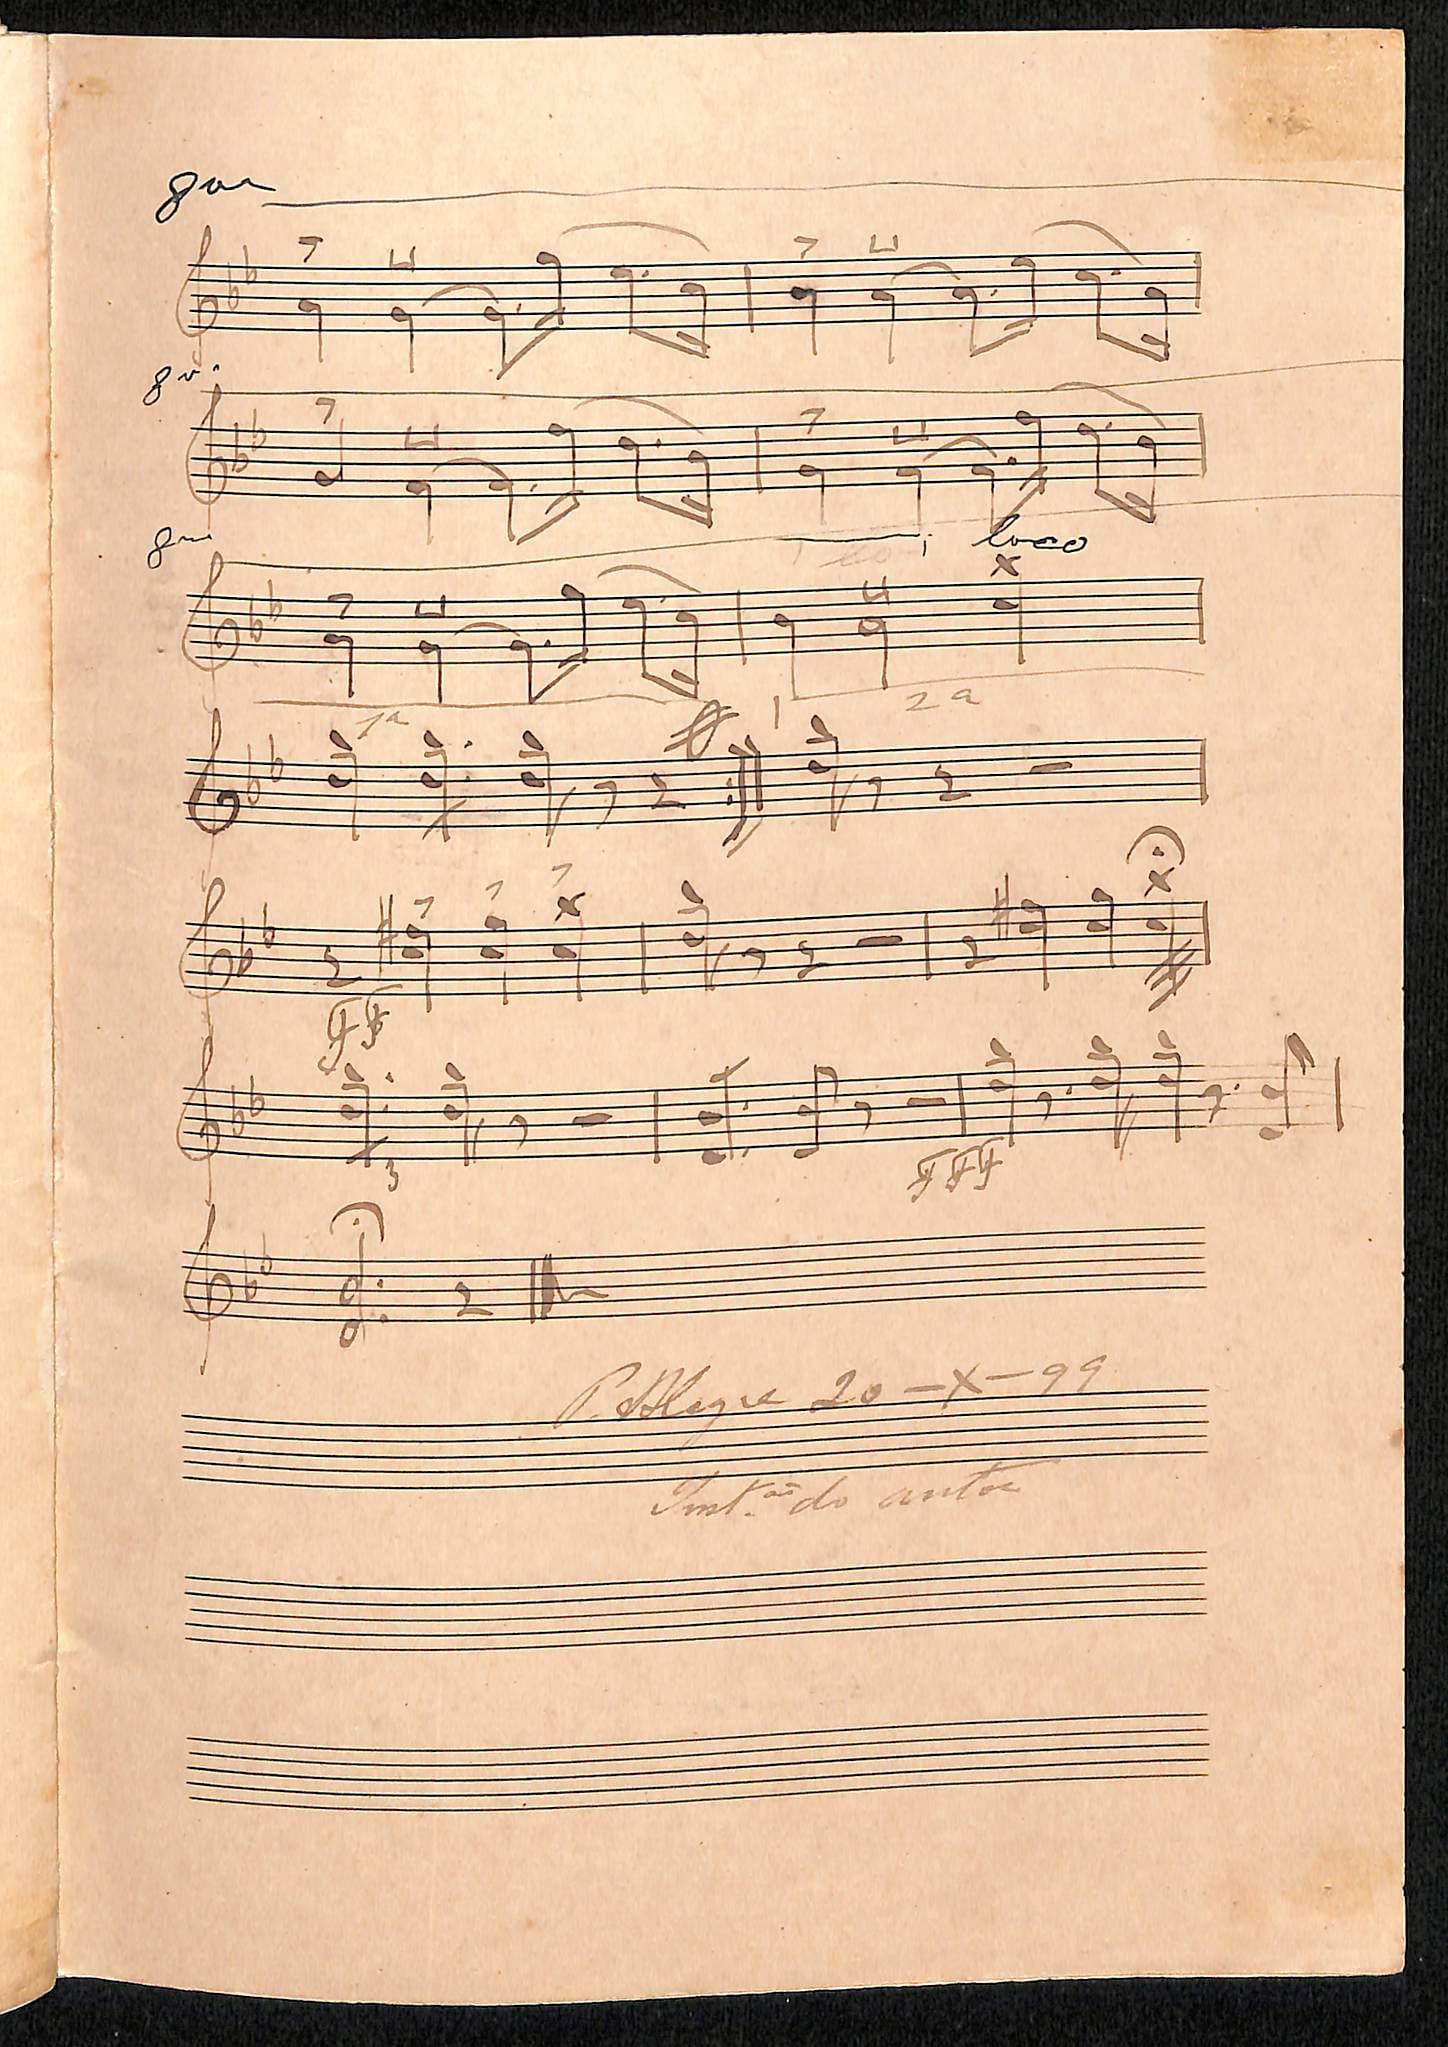 8va
8va
8va loco
1ª 2ª
ff
3
fff
P. Alegre 20-X-99
Inst.ão do autor